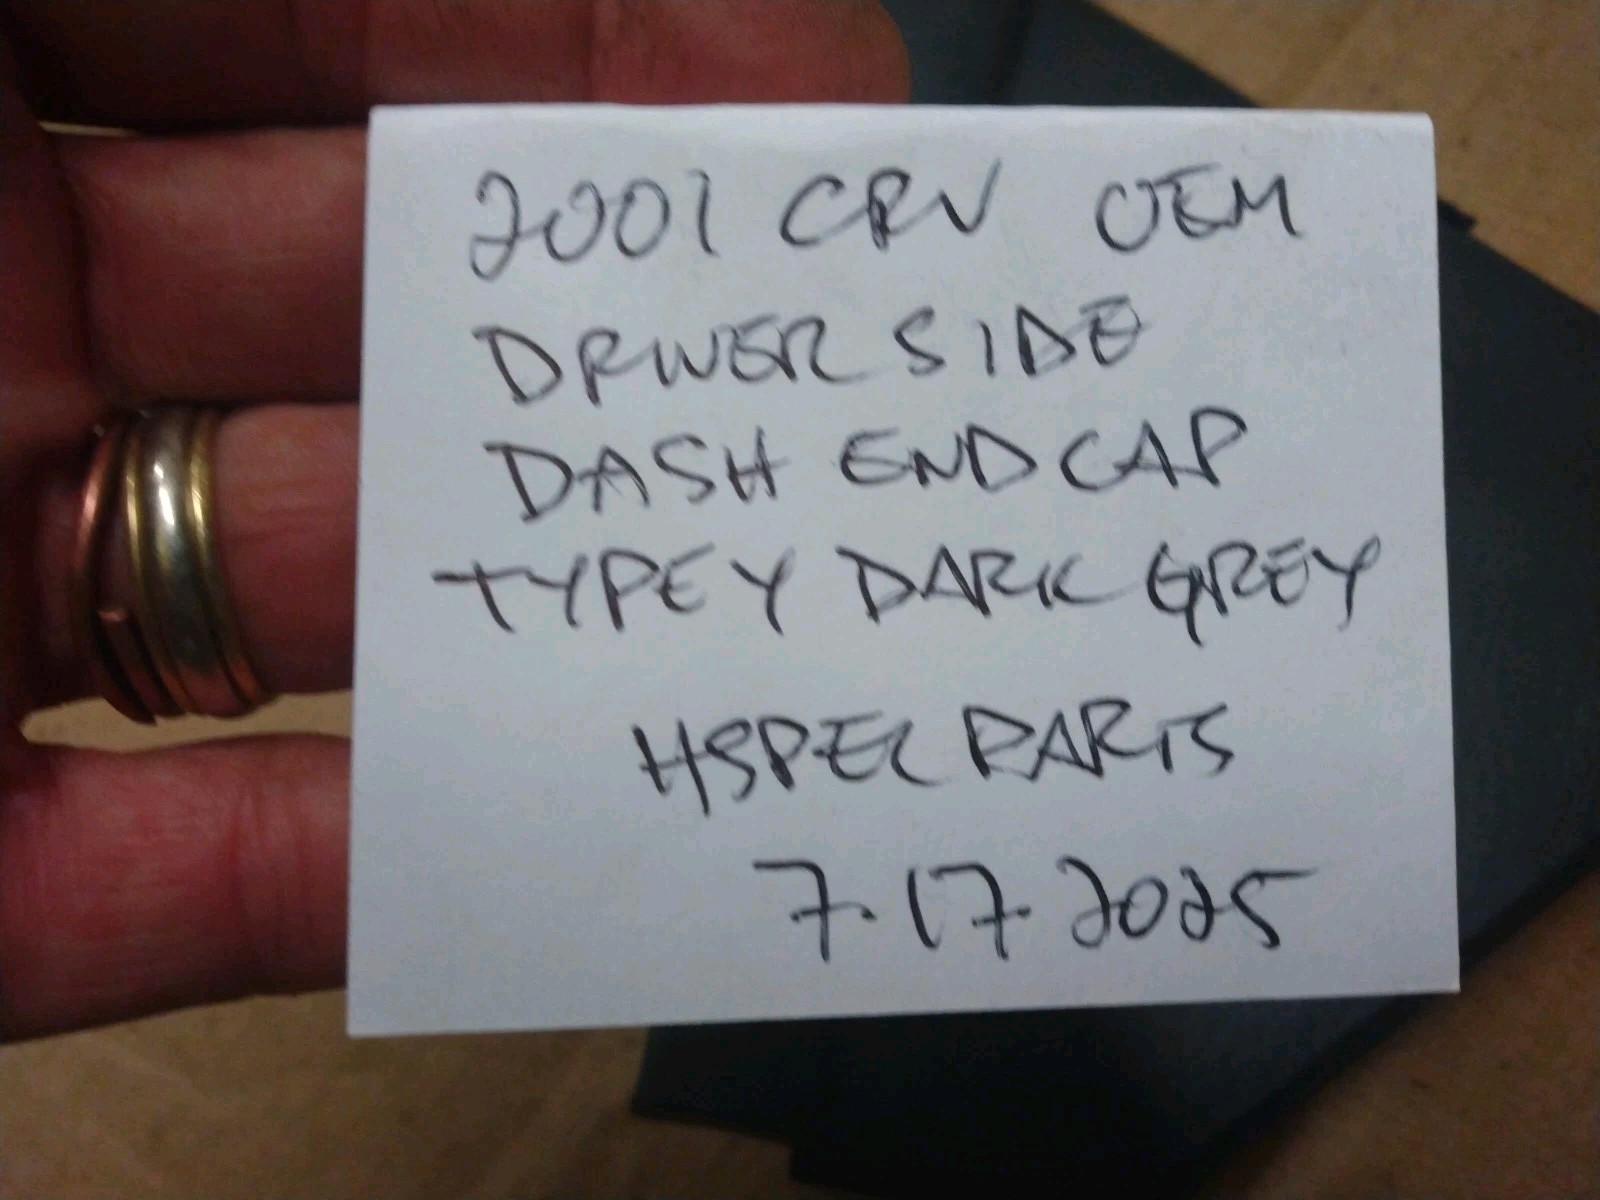 2001 CRV OEM
DRIVER SIDE
DASH END CAP
TYPE Y DARK GREY
HSPEC PARTS
7.17.2025